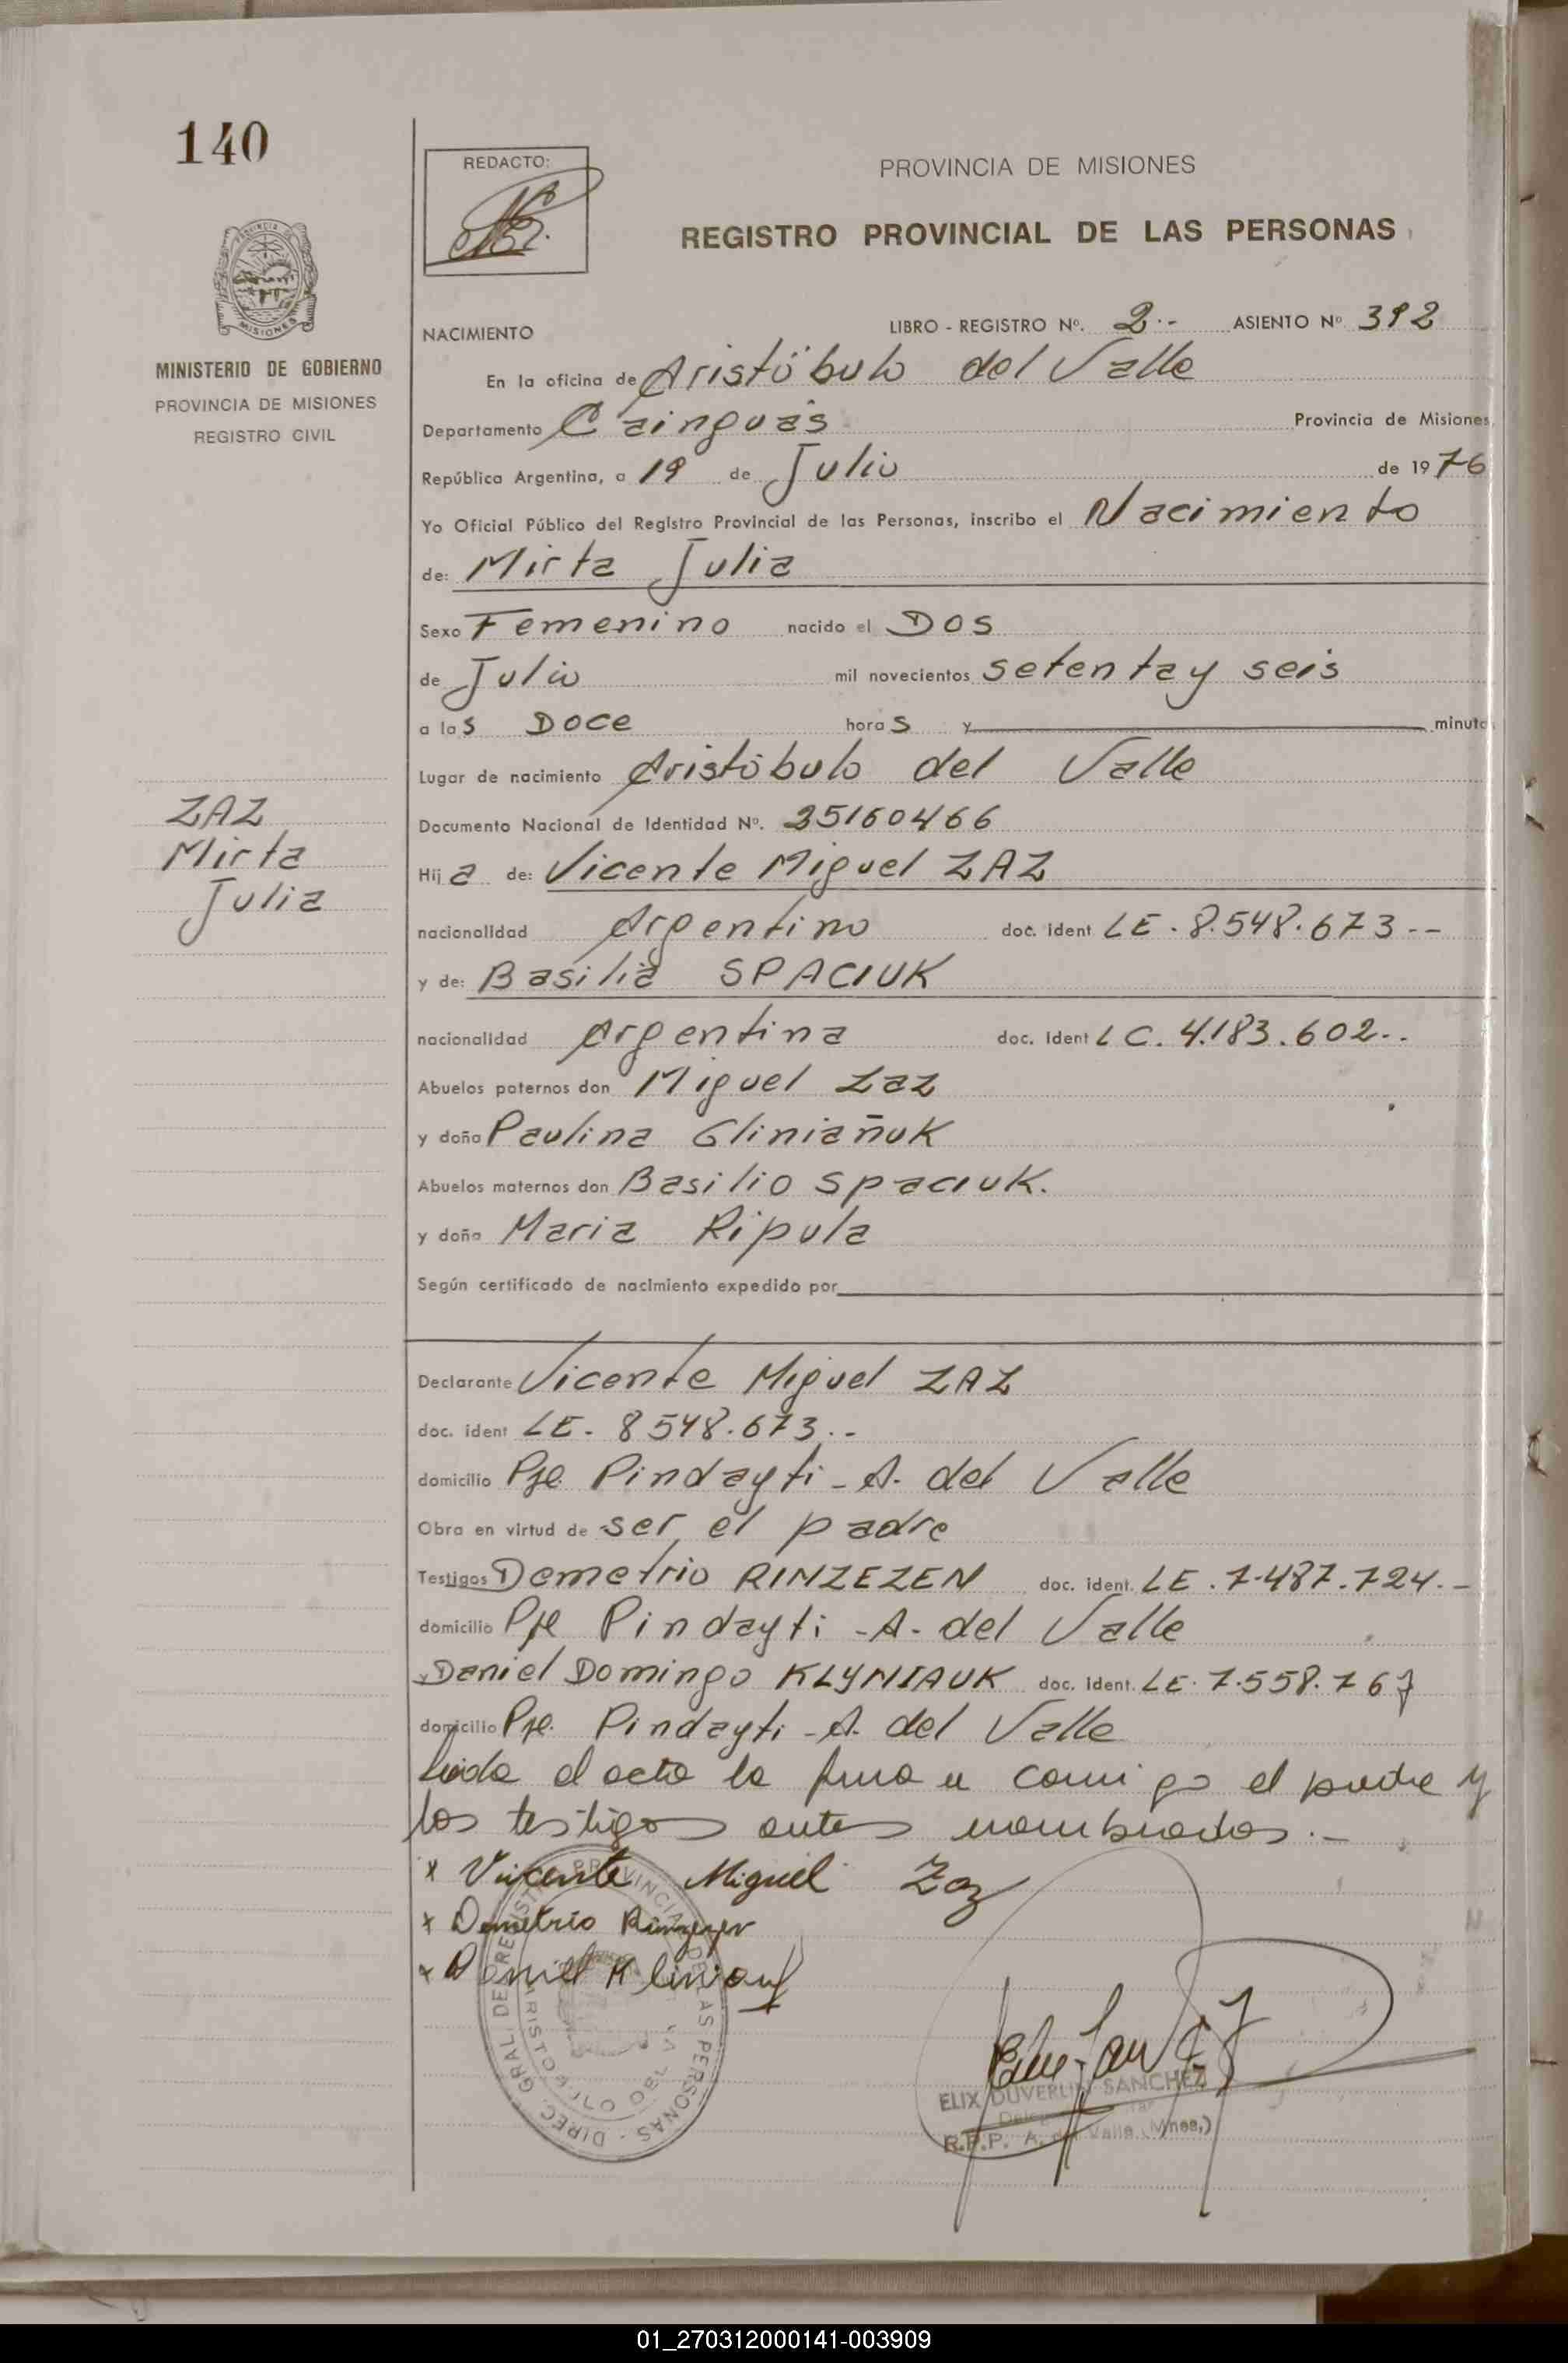 140
REDACTO:
PROVINCIA DE MISIONES
REGISTRO PROVINCIAL DE LAS PERSONAS
MISIONES
MINISTERIO DE GOBIERNO
PROVINCIA DE MISIONES
REGISTRO CIVIL
NACIMIENTO
LIBRO - REGISTRO Nº. 2.- ASIENTO Nº 392
En la oficina de Aristóbulo del Valle
Departamento Cainguás Provincia de Misiones
República Argentina, a 19 de Julio de 1976
Yo Oficial Público del Registro Provincial de las Personas, inscribo el Nacimiento
de: Mirta Julia
Sexo Femenino nacido el Dos
de Julio mil novecientos setenta y seis
a las Doce horas y minuto
Lugar de nacimiento Aristóbulo del Valle
ZAZ
Mirta
Julia
Documento Nacional de Identidad Nº. 25160466
Hija de: Vicente Miguel ZAZ
nacionalidad Argentino doc. ident LE. 8.548.673--
y de: Basilia SPACIUK
nacionalidad Argentina doc. ident LC. 4.183.602..
Abuelos paternos don Miguel Zaz
y doña Paulina Gliniañuk
Abuelos maternos don Basilio Spaciuk.
y doña Maria Ripula
Según certificado de nacimiento expedido por
Declarante Vicente Miguel ZAZ
doc. ident LE. 8548.673.-
domicilio Pje. Pindayti - A. del Valle
Obra en virtud de ser el padre
Testigos Demetrio RINZEZEN doc. ident. LE. 7.487.724.-
domicilio Pje Pindayti - A. del Valle
y Daniel Domingo KLYNIAUK doc. ident. LE. 7.558.767
domicilio Pje. Pindayti - A. del Valle
leida el acta la firma n comigo el padre y
los testigos antes nombrados.-
x Vicente Miguel Zaz
x Demetrio Rinzezen
x Daniel
DIREC. GRAL. DE REGISTRO PROVINCIAL DE LAS PERSONAS
ELIX DUVERLIN SANCHEZ
R.P.P. A. del Valle (Mnes.)
01_270312000141-003909